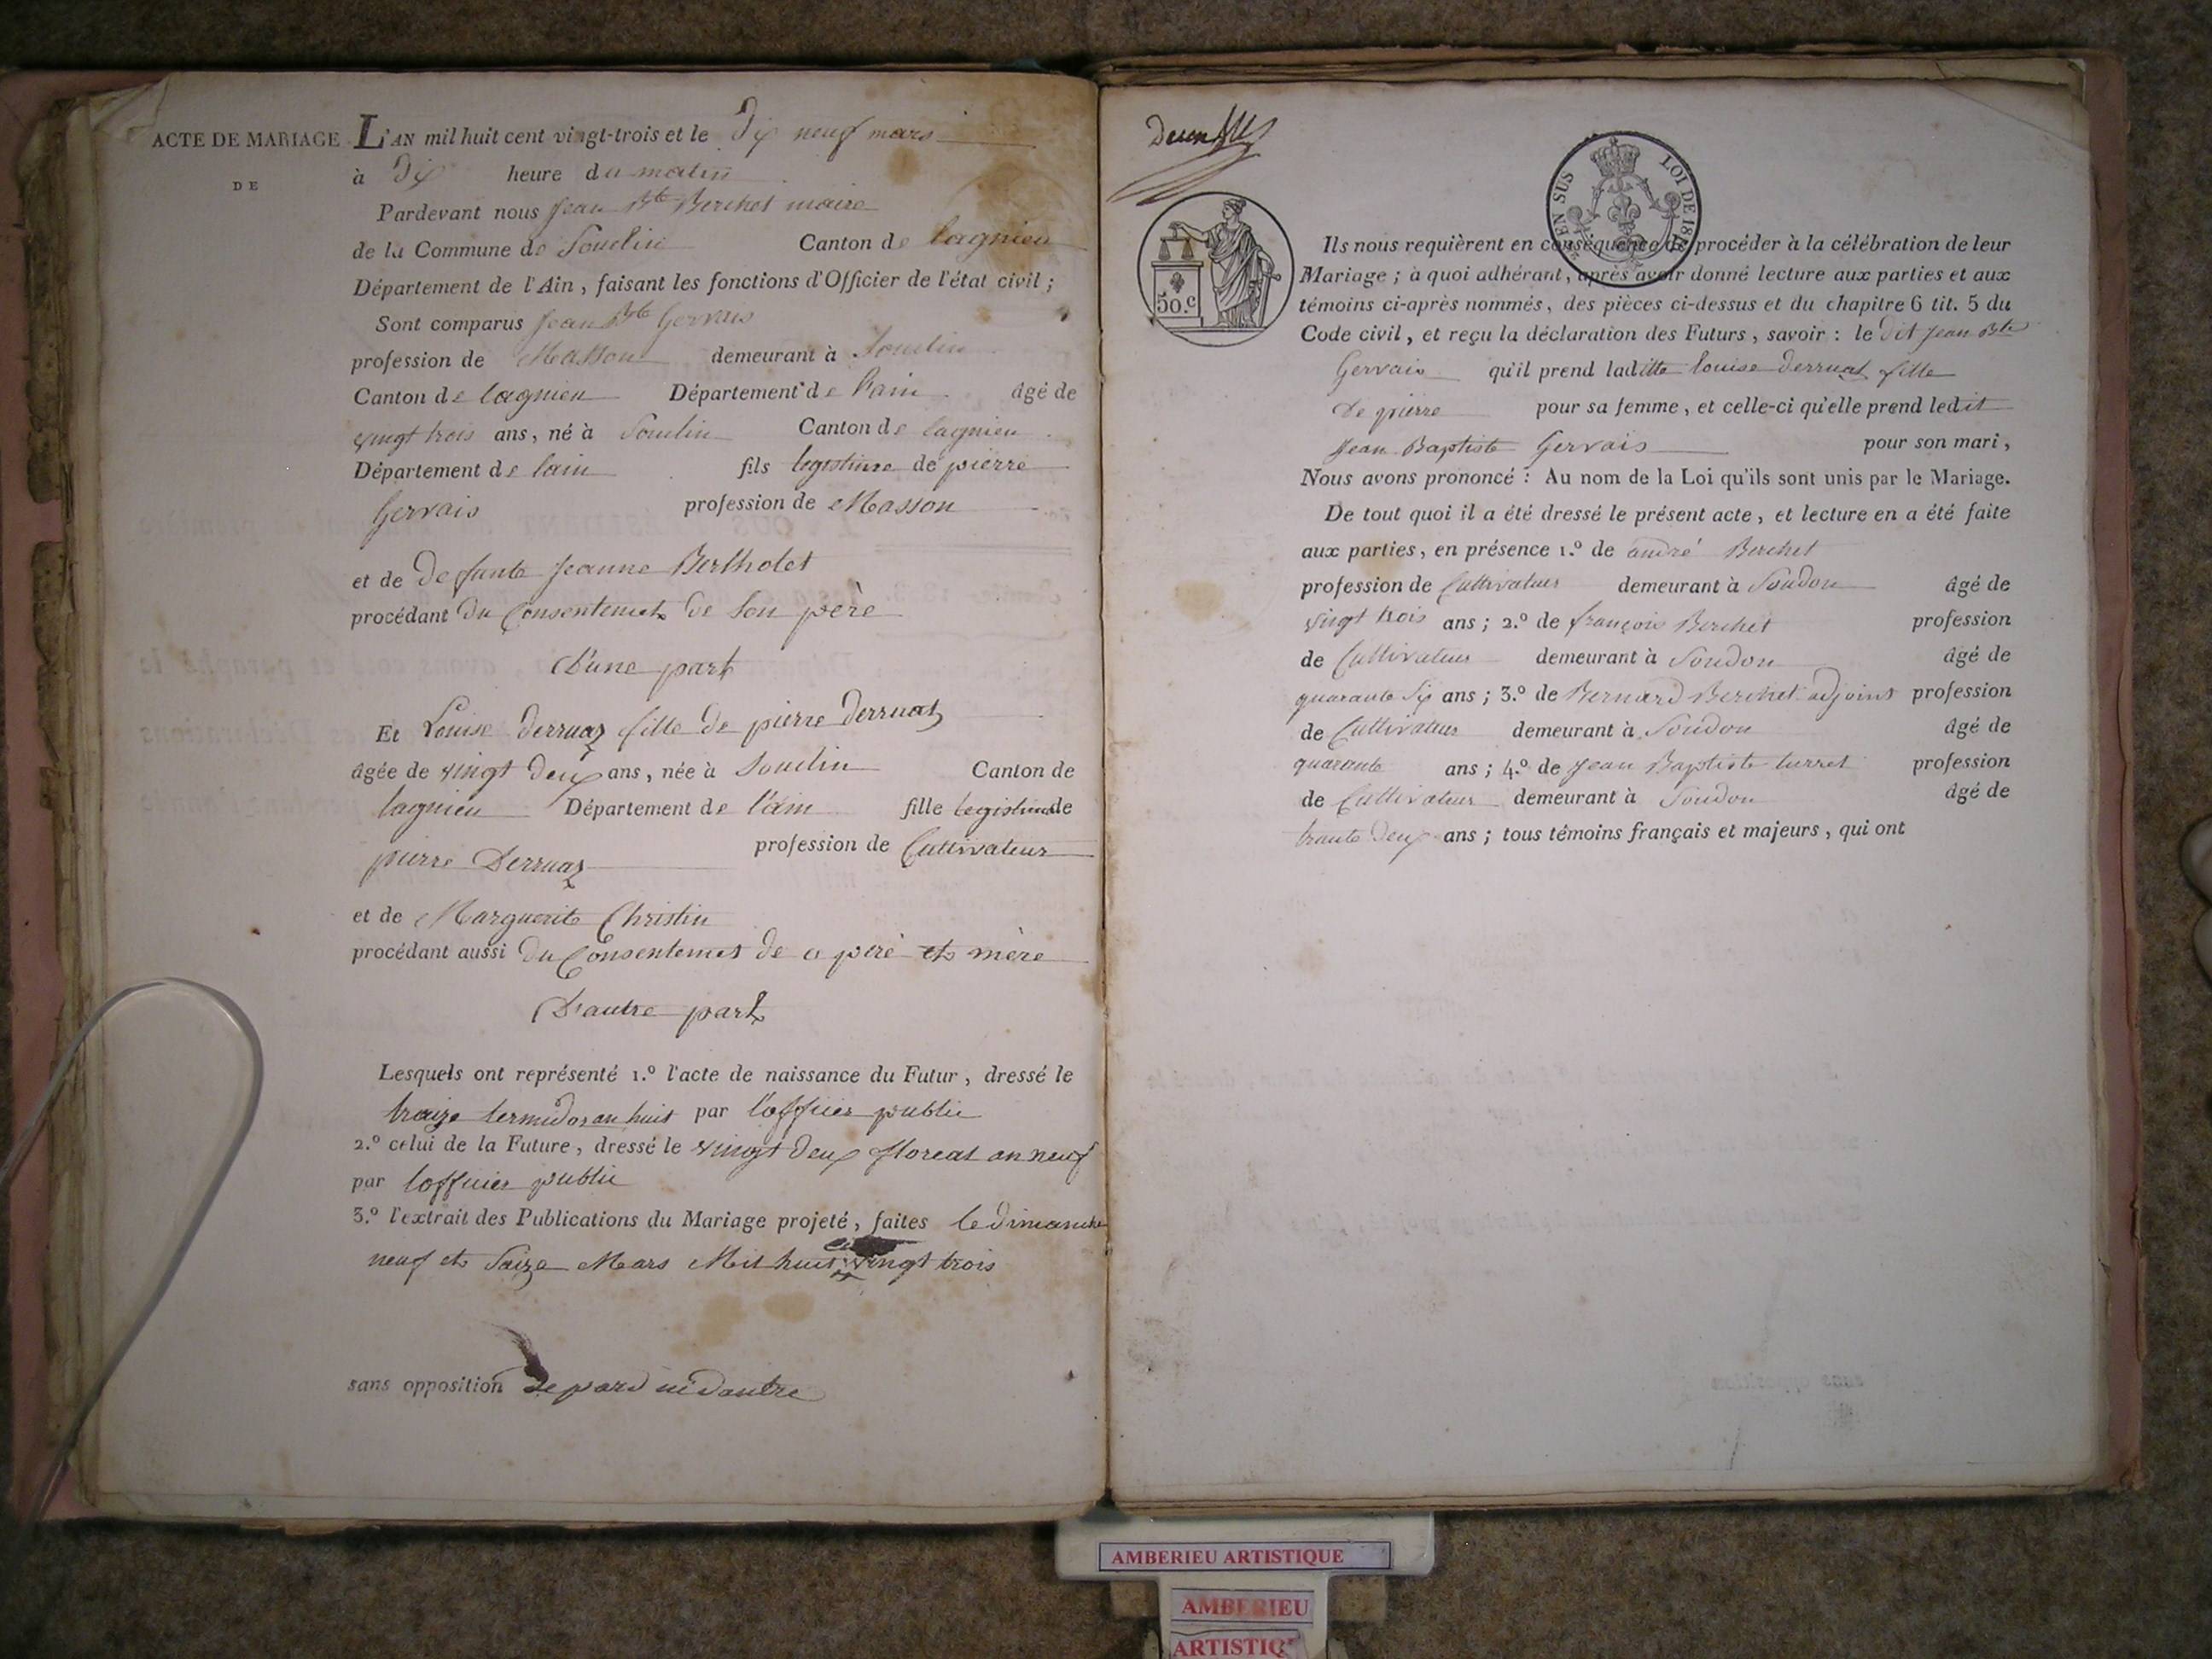 ACTE DE MARIAGE
DE
L'AN mil huit cent vingt-trois et le Dix neuf mars
à Dix heure du matin
Pardevant nous Jean Bte Berchet maire
de la Commune de Souclin Canton de lagnieu
Département de l'Ain, faisant les fonctions d'Officier de l'état civil ;
Sont comparus Jean Bte Gervais
profession de Masson demeurant à Souclin
Canton de lagnieu Département de l'ain âgé de
vingt trois ans, né à Souclin Canton de lagnieu
Département de lain fils legistime de pierre
Gervais profession de Masson
et de Defunte Jeanne Bertholet
procédant Du Consentemet de Son père
D'une part
Et Louise Derruaz fille de pierre Derruaz
âgée de vingt Deux ans, née à Souclin Canton de
lagnieu Département de l'ain fille legistime de
pierre Derruaz profession de Cultivateur
et de Marguerite Christin
procédant aussi Du Consentemet de père et mère
D'autre part
Lesquels ont représenté 1.º l'acte de naissance du Futur, dressé le
traize termidor an huit par l'officier public
2.º celui de la Future, dressé le vingt Deux floreal an neuf
par lofficier public
3.º l'extrait des Publications du Mariage projeté, faites le dimanche
neuf et Saize Mars Mil huit vingt trois
sans opposition De pard ni Dautre
50.c
EN SUS LOI DE
Ils nous requièrent en conséquence de procéder à la célébration de leur
Mariage ; à quoi adhérant, après avoir donné lecture aux parties et aux
témoins ci-après nommés, des pièces ci-dessus et du chapitre 6 tit. 5 du
Code civil, et reçu la déclaration des Futurs, savoir : le Dit Jean Bte
Gervais qu'il prend laditte louise Derruaz fille
De pierre pour sa femme, et celle-ci qu'elle prend ledit
Jean Baptiste Gervais pour son mari,
Nous avons prononcé : Au nom de la Loi qu'ils sont unis par le Mariage.
De tout quoi il a été dressé le présent acte, et lecture en a été faite
aux parties, en présence 1.º de andré Berchet
profession de Cultivateur demeurant à Soudon âgé de
vingt trois ans ; 2.º de françois Berchet profession
de Cultivateur demeurant à Soudon âgé de
quarante Six ans ; 3.º de Bernard Berchet adjoint profession
de Cultivateur demeurant à Soudon âgé de
quarante ans ; 4.º de Jean Baptiste turret profession
de Cultivateur demeurant à Soudon âgé de
trante Deux ans ; tous témoins français et majeurs, qui ont
AMBERIEU ARTISTIQUE
AMBERIEU
ARTISTIQ